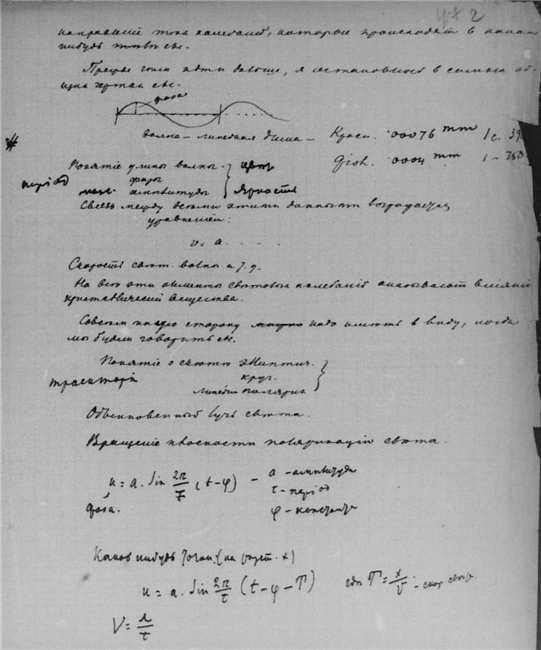 направленiе тока колебанiй, которое происходят в каком
нибудь
Прежде чем идти дальше, я остановлюсь в самых об
щих чертах
фаза
волна – линейная длина – Красн. 00076 mm 1с. 39
Понятiе длины волны. цвет фiол. 0004 mm 1 – 750
перiод фазы
амплитуды яркость
Связь между всеми этими данными выражается
уравненiем:
v = a . . . .
Скорость свет. волны и т. д.
На все эти элементы световых колебанiй оказывают влiянiе
кристаллическiй вещества.
Совсем иную сторону надо иметь в виду, когда
мы будем говорить
Понятiе о свете эллиптич.
траекторiй круг.
линейно поляриз.
Обыкновенный луч света.
Вращенiе плоскости поляризацiи света.
u = a. sin 2π/τ (t–φ) – a – амплитуда
фаза. τ – перiод
φ – константа
Какой нибудь точки (на разст. x)
u = a. sin 2π/τ (t – φ – T) где T = x/v - скор. света
V = λ/τ